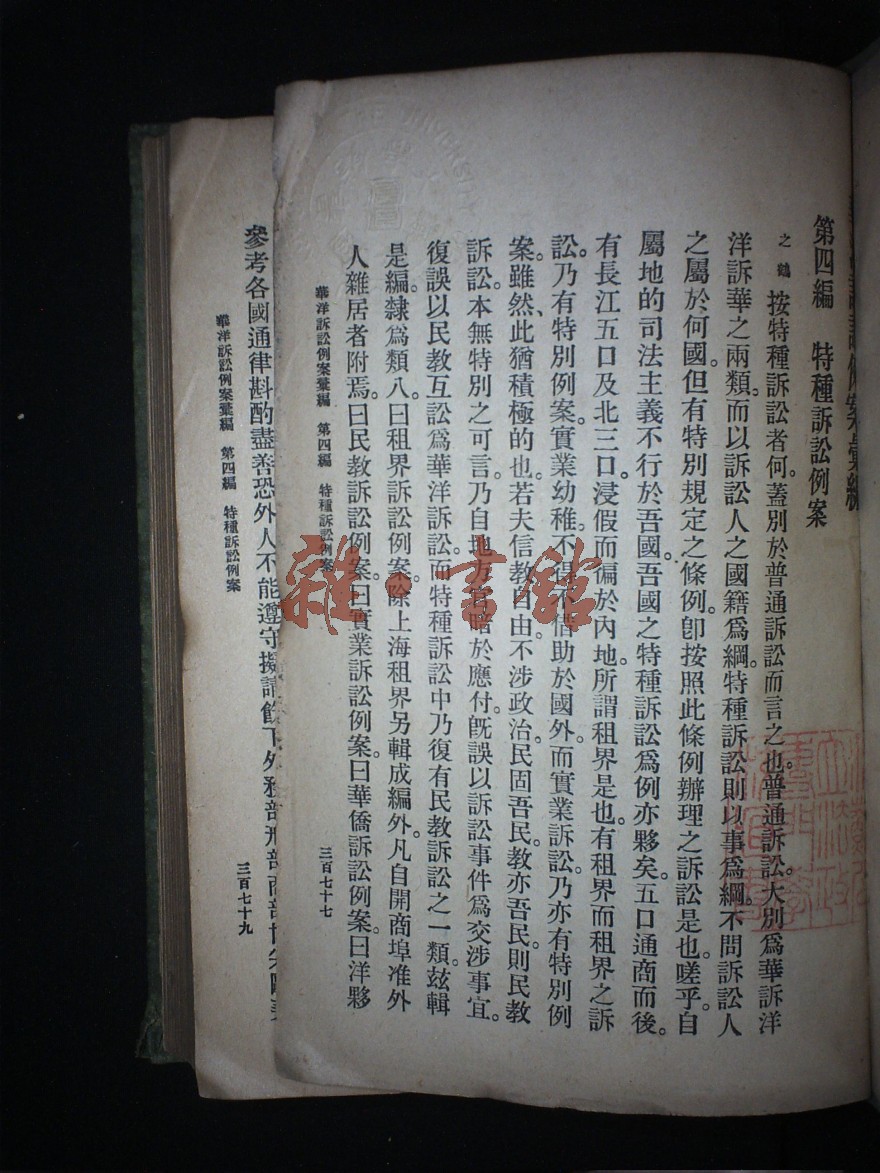 第四編　特種訴訟例案
之鶴按特種訴訟者何。蓋別於普通訴訟而言之也。普通訴訟。大別爲華訴洋
洋訴華之兩類。而以訴訟人之國籍爲綱。特種訴訟則以事爲綱。不問訴訟人
之屬於何國。但有特別規定之條例。卽按照此條例辦理之訴訟是也。嗟乎。自
屬地的司法主義不行於吾國。吾國之特種訴訟爲例亦夥矣。五口通商而後。
有長江五口及北三口。浸假而徧於內地。所謂租界是也。有租界而租界之訴
訟。乃有特別例案。實業幼稚。不得不借助於國外。而實業訴訟。乃亦有特別例
案。雖然、此猶積極的也。若夫信教自由。不涉政治。民固吾民。教亦吾民。則民教
訴訟。本無特別之可言。乃自地方官暗於應付。旣誤以訴訟事件爲交涉事宜。
復誤以民教互訟爲華洋訴訟。而特種訴訟中乃復有民教訴訟之一類。玆輯
是編。隸爲類八。曰租界訴訟例案。除上海租界另輯成編外。凡自開商埠准外
人雜居者附焉。曰民教訴訟例案。曰實業訴訟例案。曰華僑訴訟例案。曰洋夥
華洋訴訟例案彙編　第四編　特種訴訟例案　三百七十七
參考各國通律斟酌盡善恐外人不能遵守擬請飭下外務部刑部商部
華洋訴訟例案彙編　第四編　特種訴訟例案　三百七十九
雜·書館